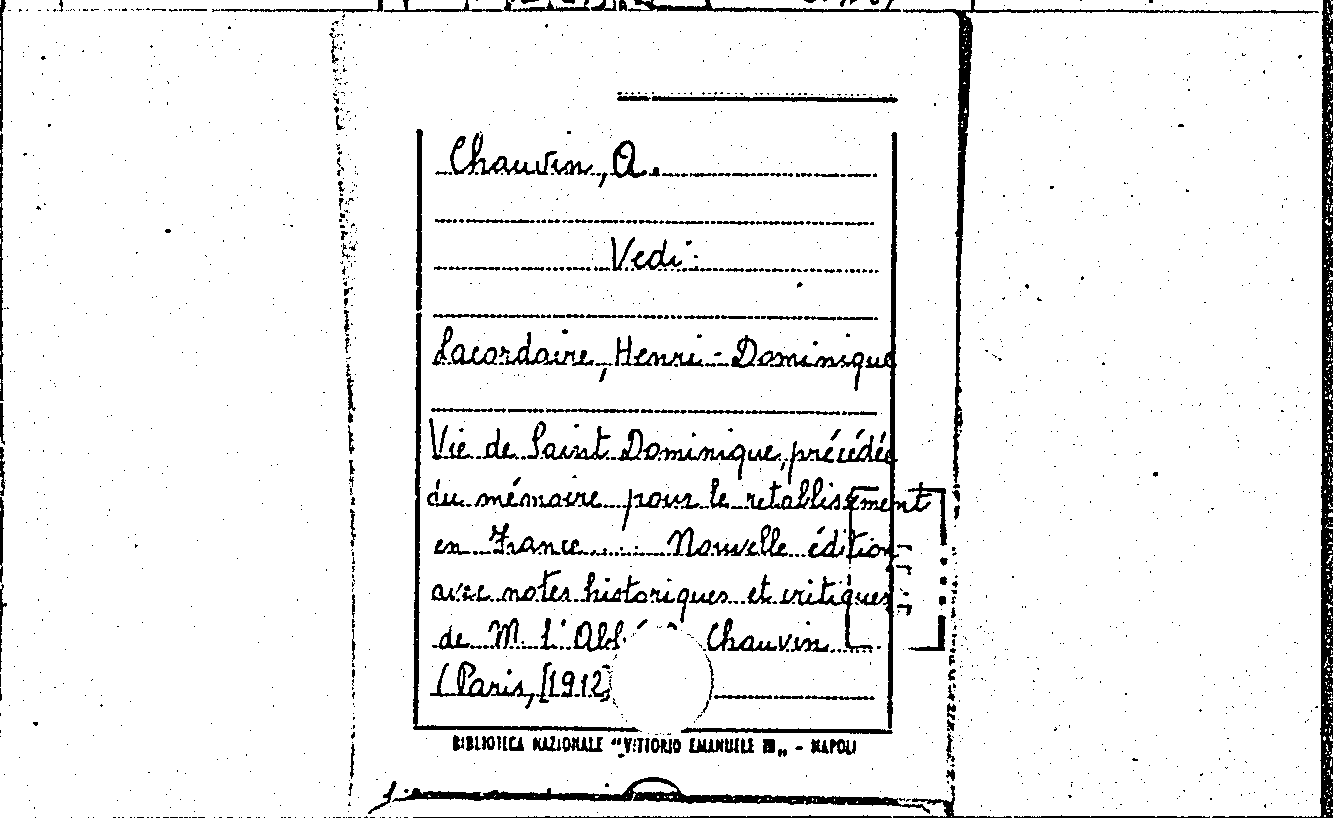 Chauvin, A.
Vedi:
Lacordaire, Henri-Dominique
Vie de Saint Dominique, précédée
du mémoire pour le retablissement
en France.... Nouvelle édition
avec notes historiques et critiques
de M. l'Abbé Chauvin
(Paris, [1912]
BIBLIOTECA NAZIONALE "VITTORIO EMANUELE III„ - NAPOLI